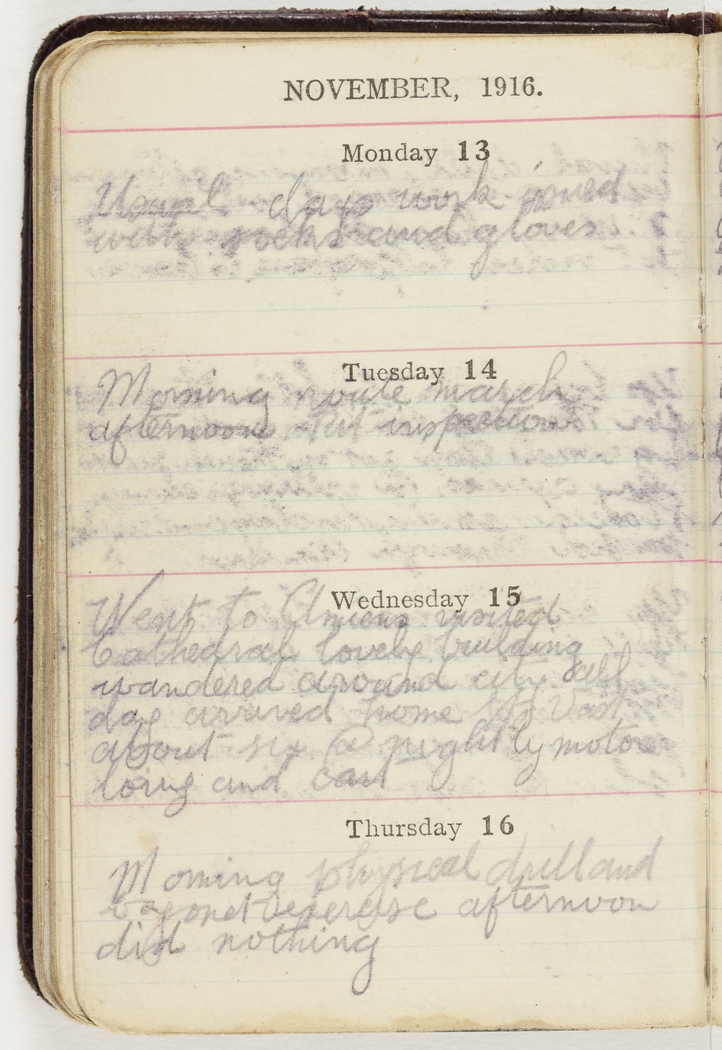 NOVEMBER, 1916.
Monday 13
Usual days work issued
with socks and gloves
Tuesday 14
Morning route march
afternoon kit inspection
Wednesday 15
Went to Amiens visited
Cathedral lovely building
wandered around city all
day arrived home St Vast
about six @ night by motor
lorry and car
Thursday 16
Morning physical drill and
bayonet exercise afternoon
did nothing